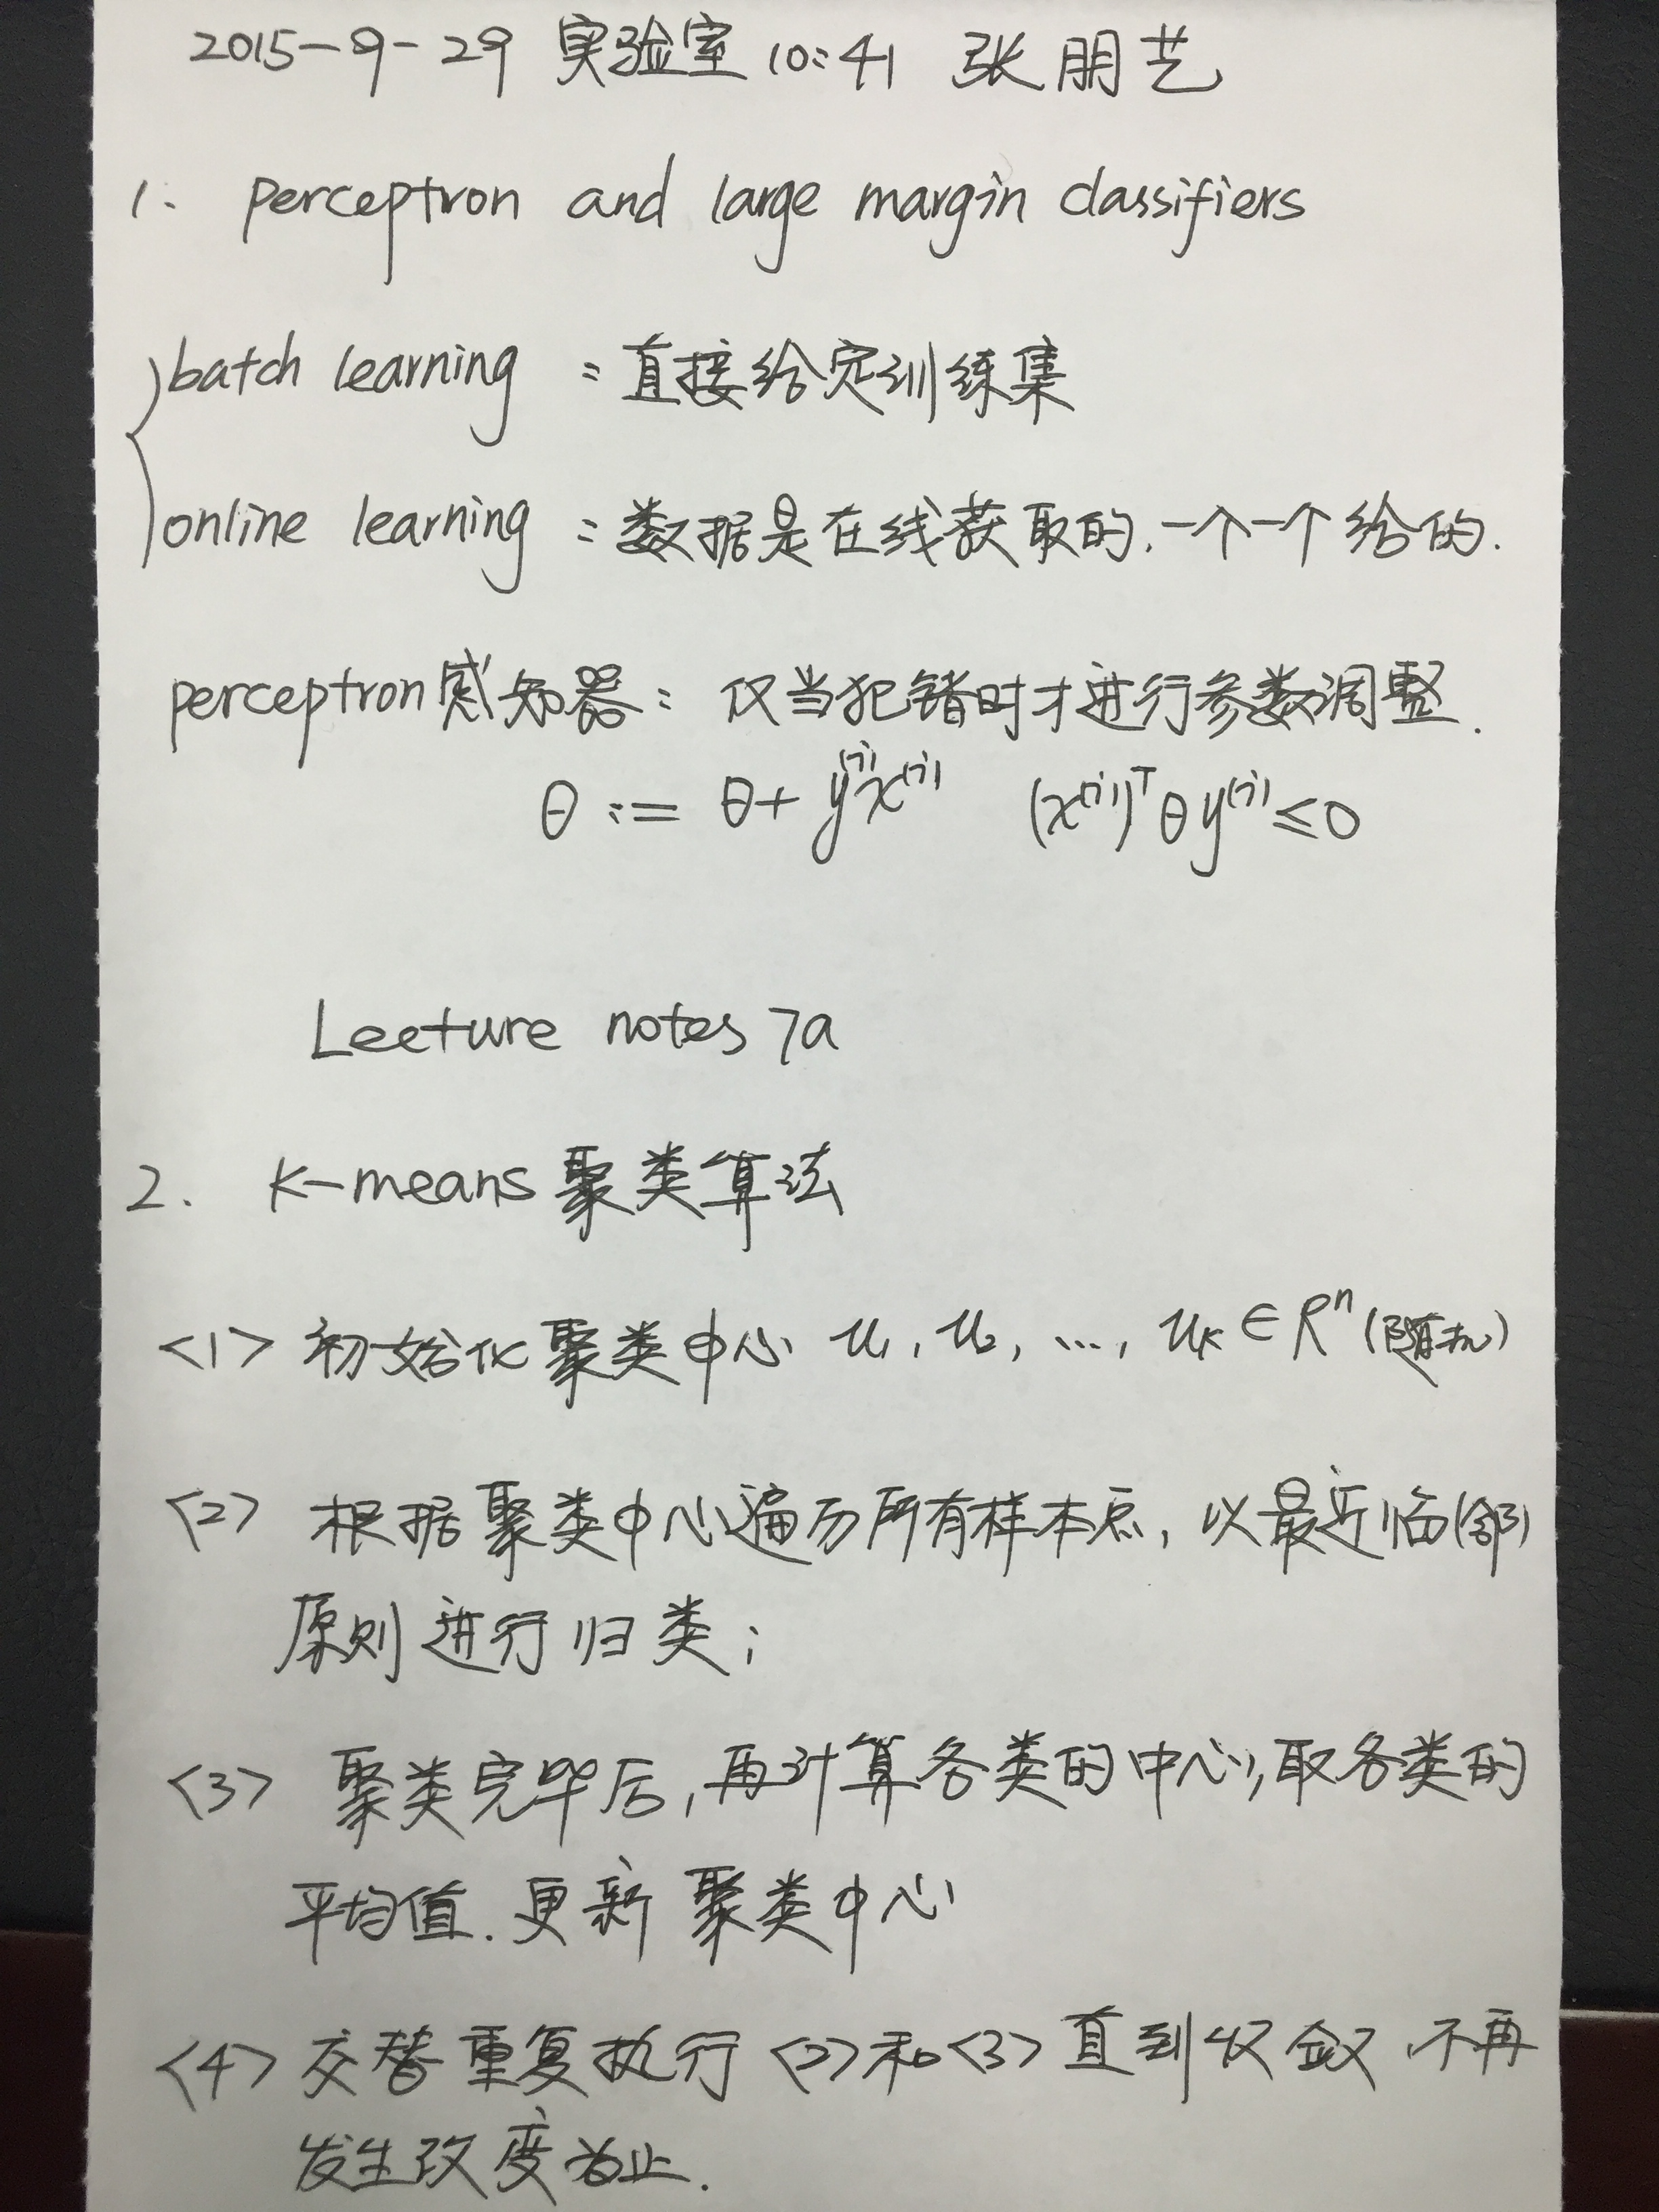 2015-9-29 实验室 10:41 张朋艺
1. perceptron and large margin classifiers
batch learning : 直接给定训练集
online learning : 数据是在线获取的,一个一个给的.
perceptron感知器: 仅当犯错时才进行参数调整.
θ := θ + y⁽ⁱ⁾x⁽ⁱ⁾ (x⁽ⁱ⁾)ᵀθy⁽ⁱ⁾≤0
Lecture notes 7a
2. K-means 聚类算法
<1> 初始化聚类中心 u₁, u₂, ..., uₖ ∈ Rⁿ (随机)
<2> 根据聚类中心遍历所有样本点, 以最近临(邻)
原则进行归类;
<3> 聚类完毕后,再计算各类的中心,取各类的
平均值.更新聚类中心
<4> 交替重复执行<2>和<3>直到收敛,不再
发生改变为止.